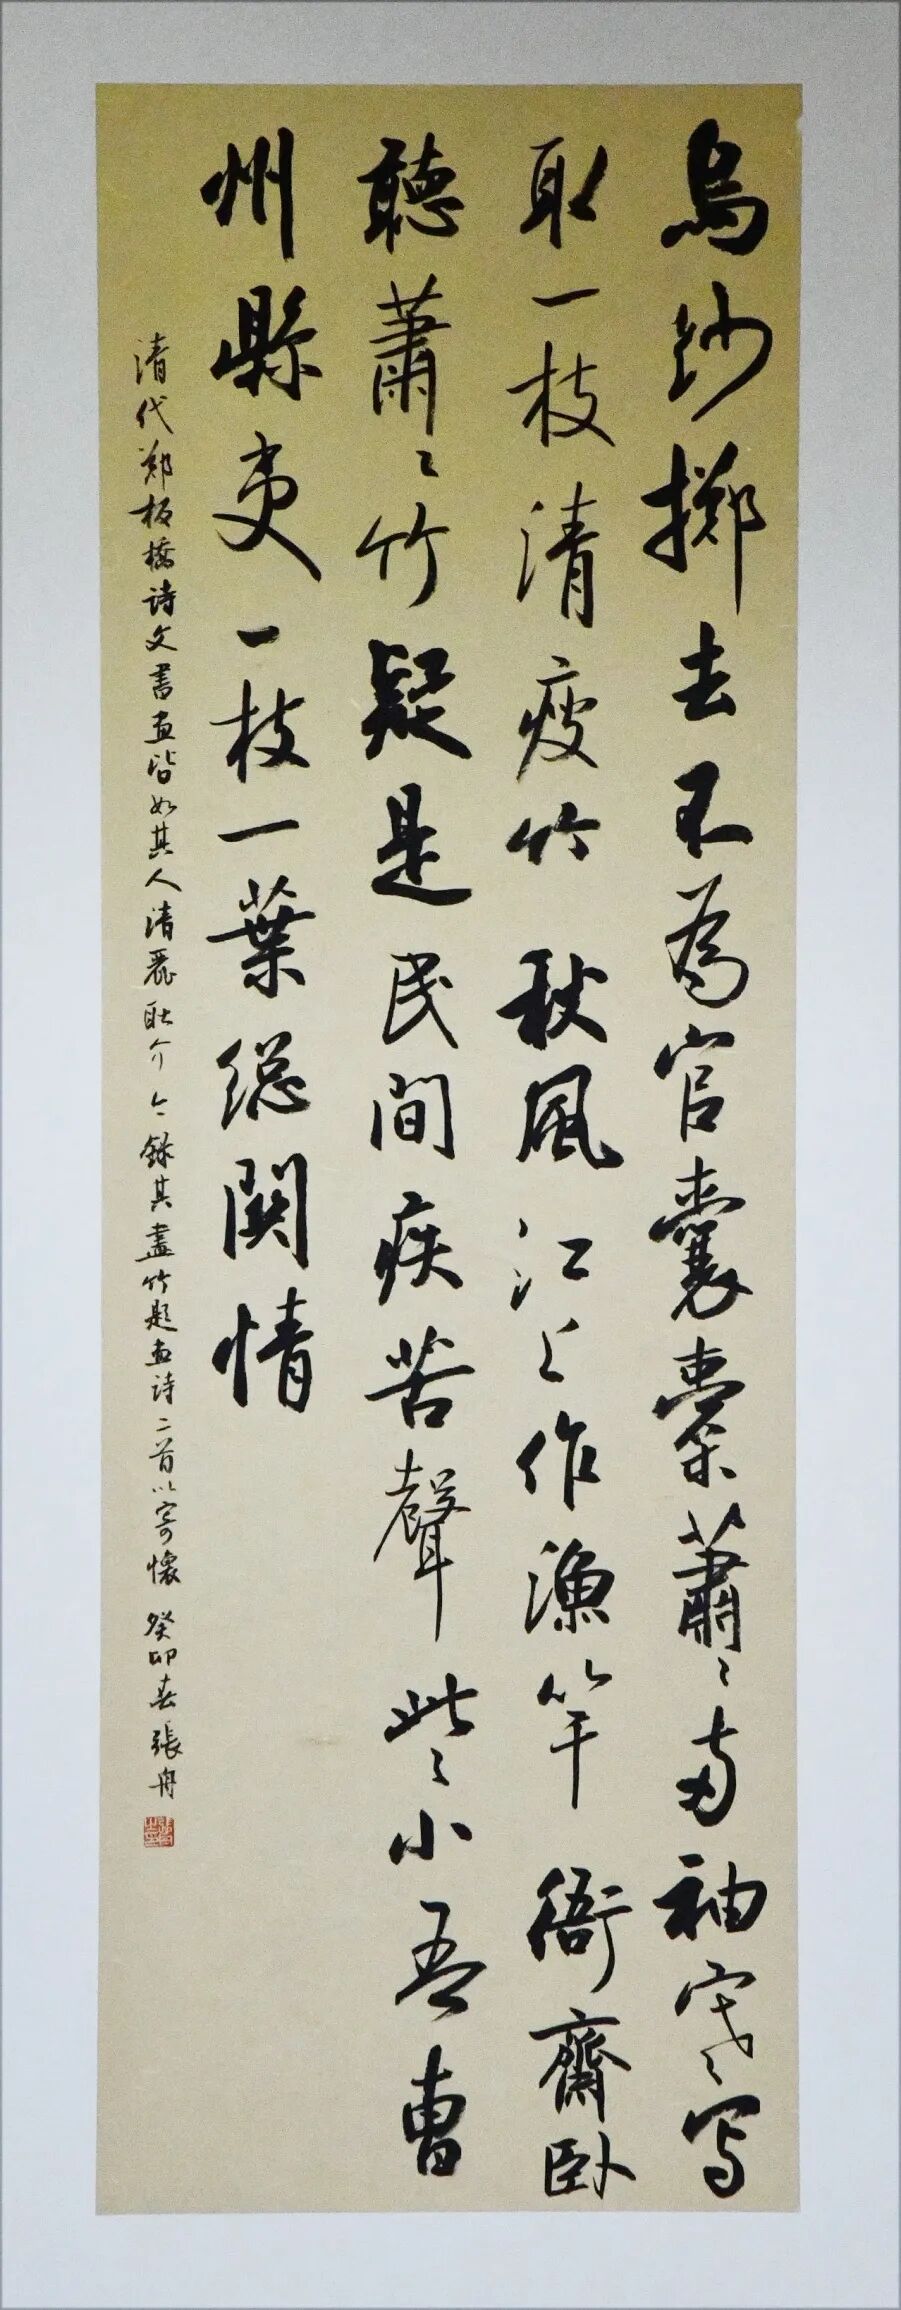 烏紗擲去不為官囊橐蕭〻兩袖寒〻寫
取一枝清瘦竹秋風江上作漁竿衙齋卧
聽蕭〻竹疑是民間疾苦聲此〻小吾曹
州縣吏一枝一葉總關情
清代鄭板橋诗文書画皆如其人清麗耿介今錄其畫竹题画诗二首以寄懷癸卯春張舟